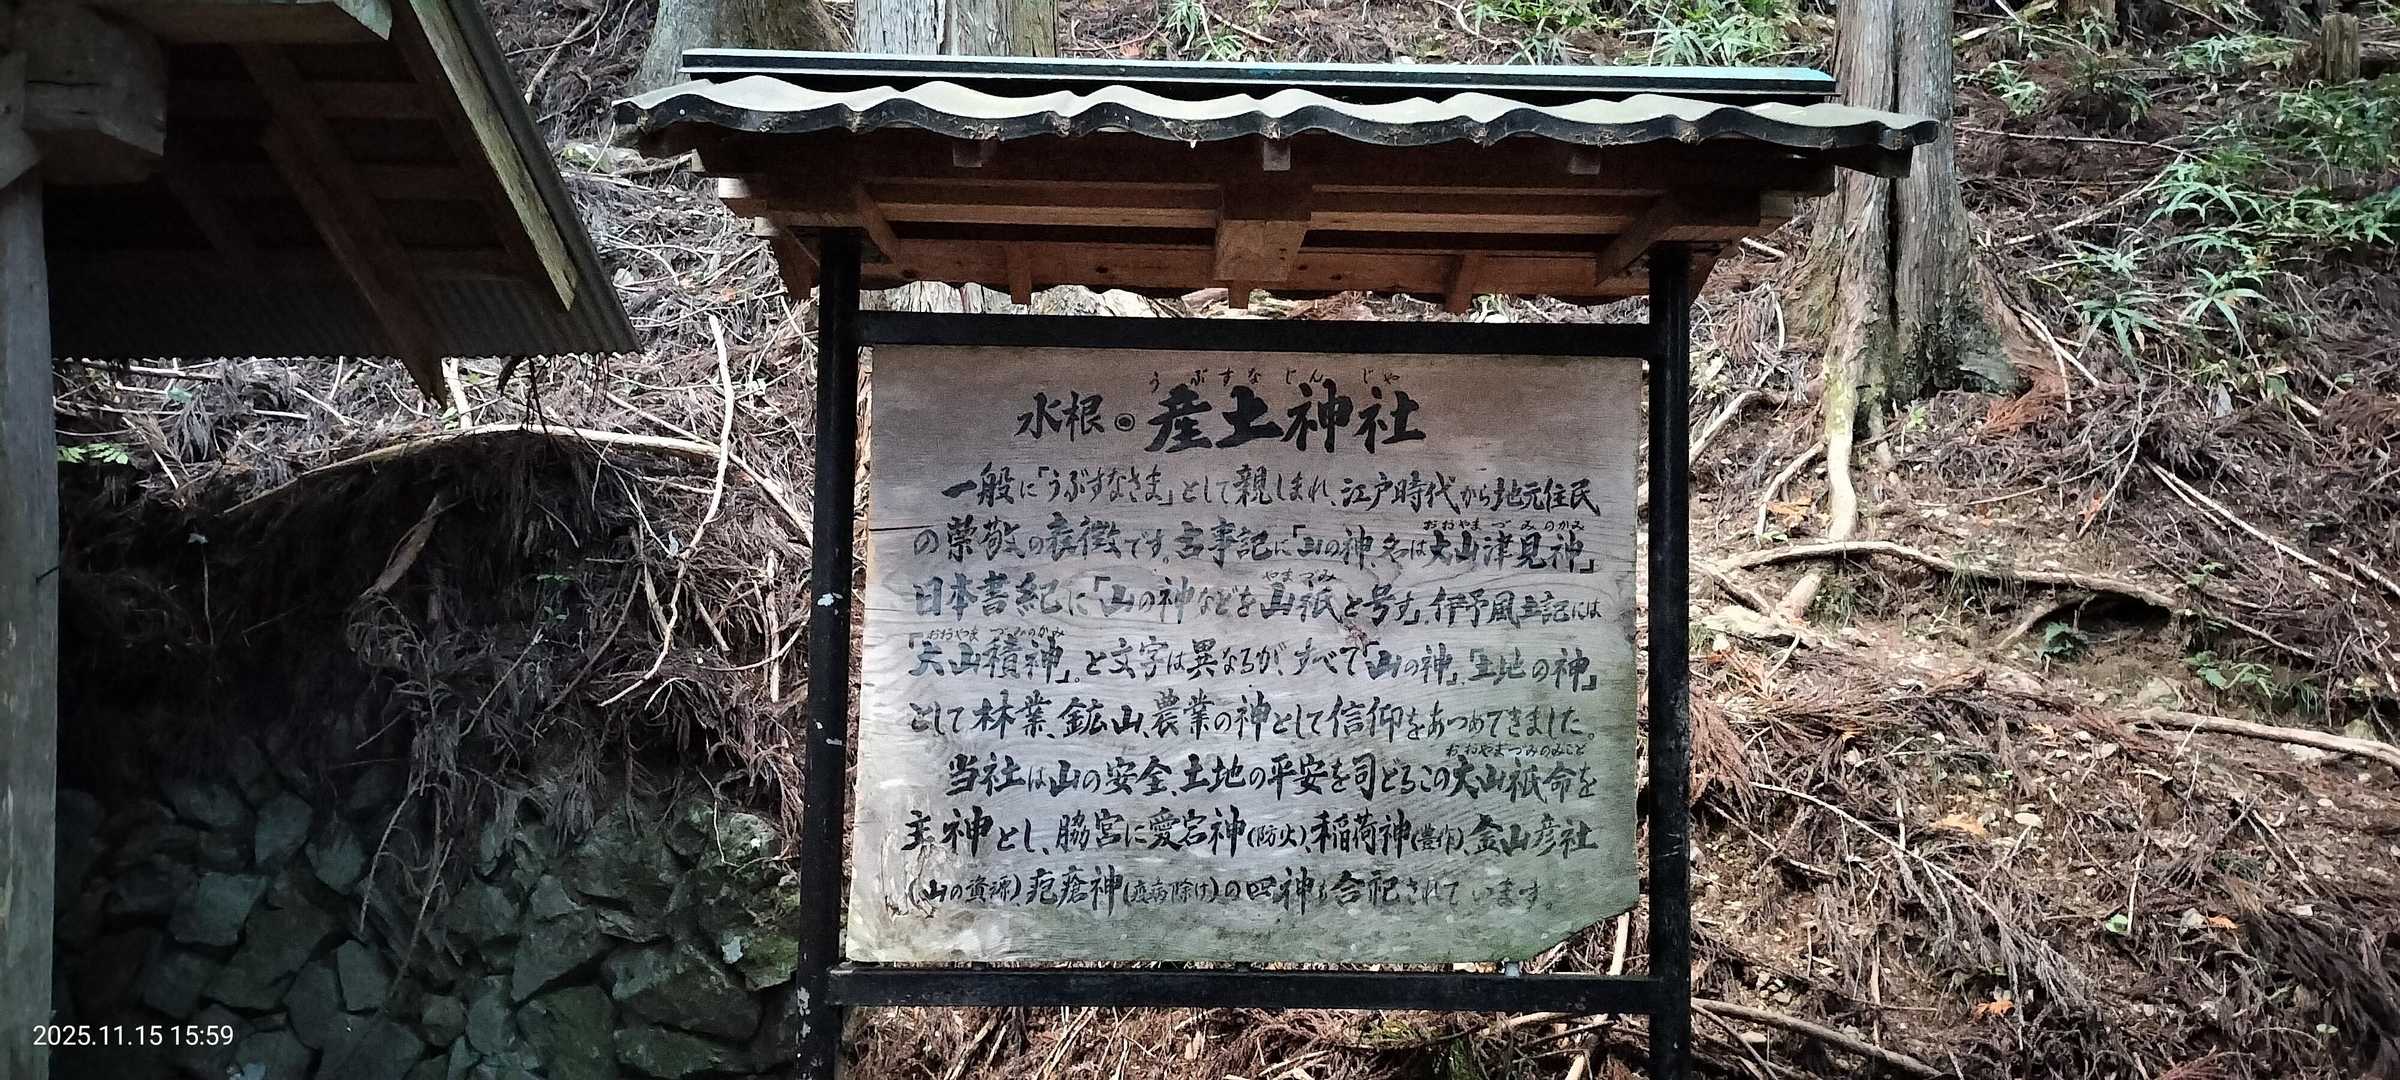 うぶすなじんじゃ
水根◉産土神社
一般に「うぶすなさま」として親しまれ、江戸時代から地元住民
おおやまづみのかみ
の崇敬の表徴です。古事記に「山の神、名は大山津見神」
やまづみ
日本書紀に「山の神などを山祇と号す」、伊予風土記には
おおやまづみのかみ
「大山積神」。と文字は異なるが、すべて「山の神」、「土地の神」
として林業、鉱山、農業の神として信仰をあつめてきました。
おおやまつみのみこと
当社は山の安全、土地の平安を司どるこの大山祇命を
主神とし、脇宮に愛宕神(防火)、稲荷神(豊作)、金山彦社
(山の資源)疱瘡神(疫病除け)の四神も合祀されています。
2025.11.15 15:59